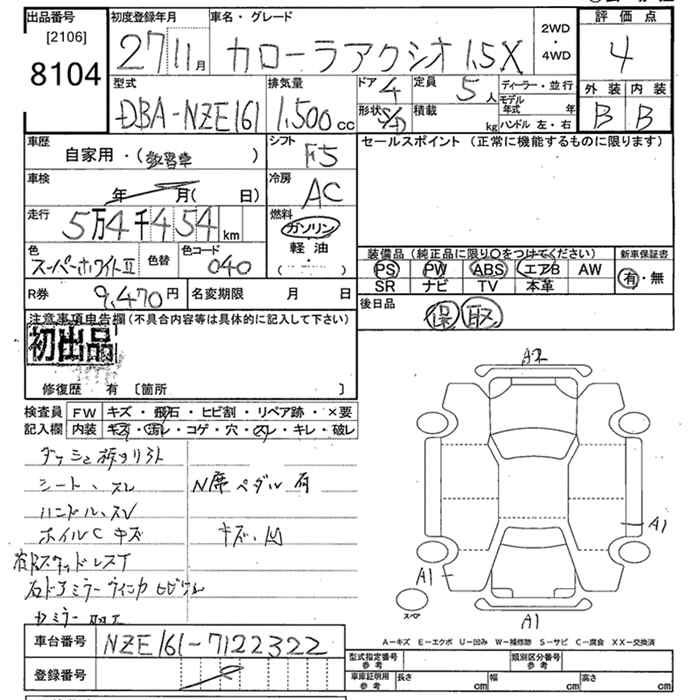 出品番号
[2106]
8104
初度登録年月
27 11月
車名・グレード
カローラアクシオ 1.5X
2WD
・
4WD
評価点
4
外装 内装
B B
型式
DBA-NZE161
排気量
1,500cc
ドア 4
定員 5人
ディーラー・並行
モデル年式 年
形状 S/D
積載 kg
ハンドル 左・右
車歴
自家用・( 教習車 )
シフト
F5
セールスポイント (正常に機能するものに限ります)
車検
年 月( 日)
冷房
AC
走行
5万4千454km
燃料
ガソリン
軽油
( )
色
スーパーホワイトⅡ
色替
色コード
040
装備品 (純正品に限り○をつけてください)
PS PW ABS エアB AW
SR ナビ TV 本革
新車保証書
有・無
R券 9,470円
名変期限 月 日
後日品
保 取
注意事項申告欄(不具合内容等は具体的に記入して下さい)
初出品
修復歴 有 〔箇所 〕
検査員記入欄
FW キズ・飛石・ヒビ割・リペア跡・×要
内装 キズ・汚レ・コゲ・穴・スレ・キレ・破レ
シート、スレ
N席ペダル有
ハンドル、スレ
ホイルC キズ
キズ、凹
A2
A1
A1
A1
スペア
A-キズ E-エクボ U-凹み W-補修跡 S-サビ C-腐食 XX-交換済
車台番号 NZE161-7122322
登録番号
型式指定番号 参考
類別区分番号 参考
車庫証明用 参考
長さ cm 幅 cm 高さ cm